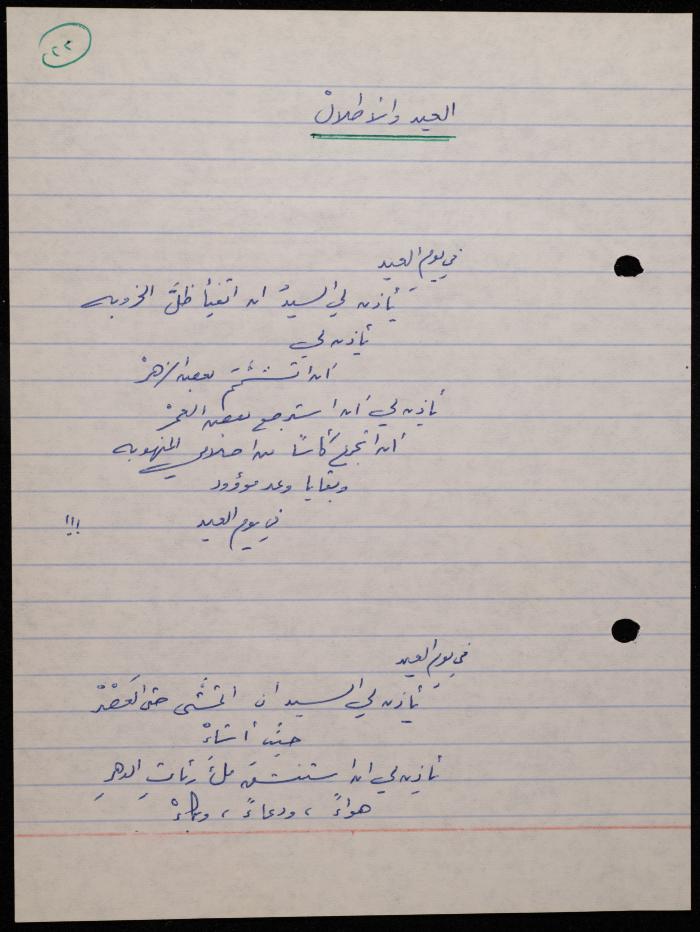 ٢٢
العيد والأطلالْ
في يوم العيد
يأذن لي السيدُ ان اتفيأ ظلَّ الخروبه
يأذن لي
أن اتشمّمَ بعض الزهرْ
يأذن لي أن استرجع بعض العمرْ
أن اتجرّع كأسًا من احلامي المنهوبه
وبقايا وعد موؤود
في يوم العيد !!!
في يوم العيد
يأذن لي السيد أن اتمشَّى حتى العَصْرْ
حيثُ أشاءْ
يأذن لي ان استنشقَ ملءَ رئاتِ الدهرِ
هواءً ، ودعاءً ، وبكاءْ